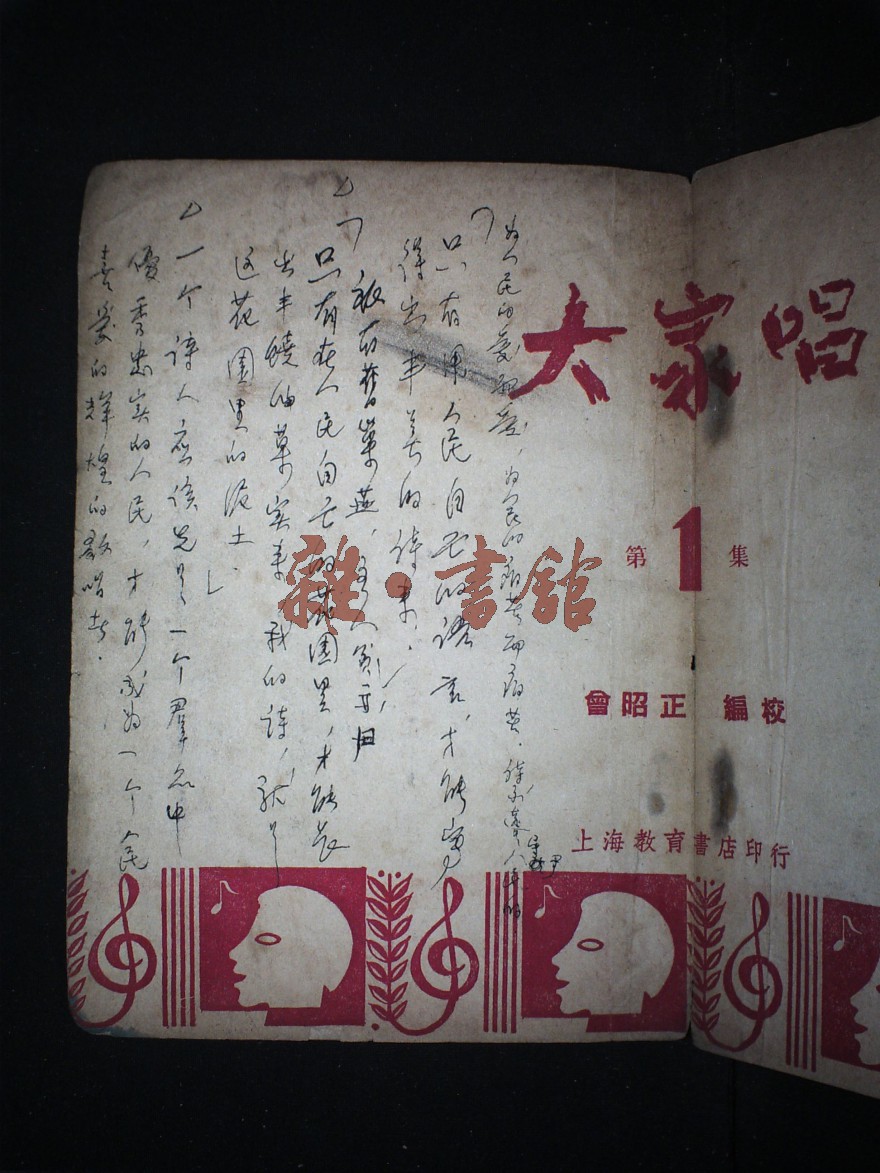 大家唱
第1集
曾昭正 編校
上海教育書店印行
为人民的爱而爱,为人民的痛苦而痛苦.
只有用人民自己的語言,才能寫
得出丰美的诗来.」
只有在人民自己的花園里,才能长
出丰饒的菓实来 我的詩,就是
这花園里的泥土.」
一个詩人应该先是一个羣众中
優秀忠实的人民,才能成为一个人民
喜爱的辉煌的歌唱者.
雜·書館